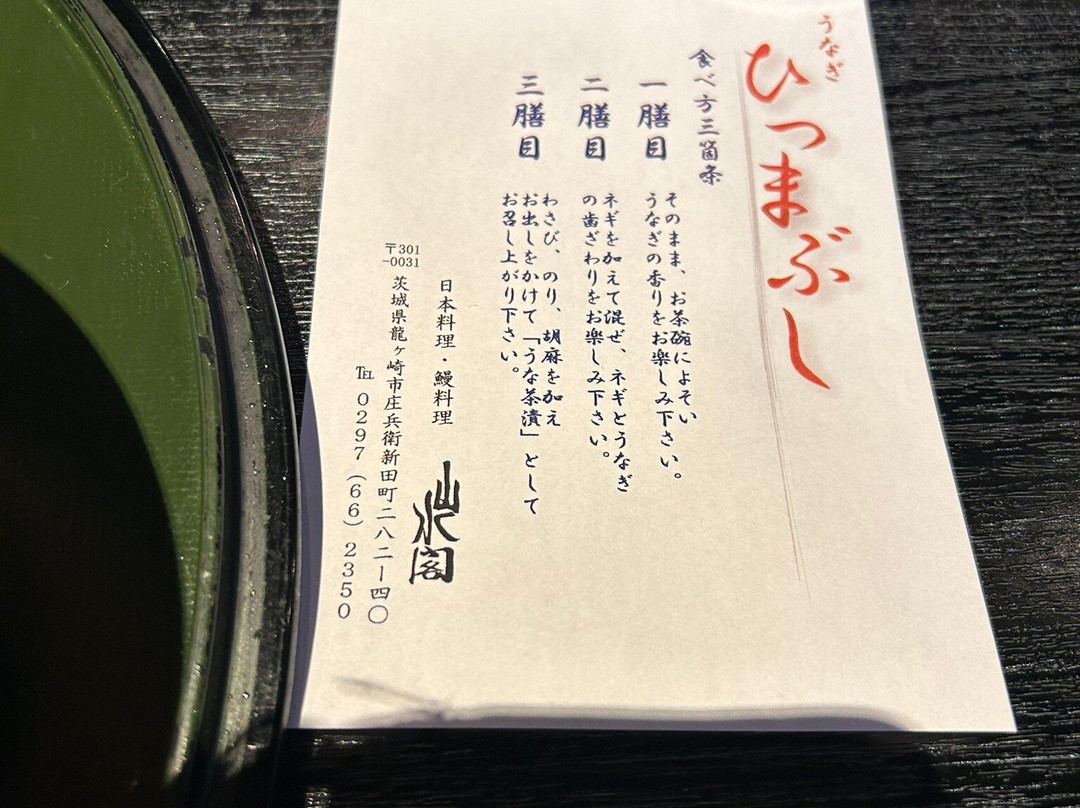 うなぎ
ひつまぶし
食べ方三箇条
一膳目
そのまま、お茶碗によそい
うなぎの香りをお楽しみ下さい。
二膳目
ネギを加えて混ぜ、ネギとうなぎ
の歯ざわりをお楽しみ下さい。
三膳目
わさび、のり、胡麻を加え
お出しをかけて「うな茶漬」として
お召し上がり下さい。
日本料理・鰻料理
山水閣
〒301
-0031
茨城県龍ヶ崎市庄兵衛新田町二八二ー四〇
℡ 0297(66)2350